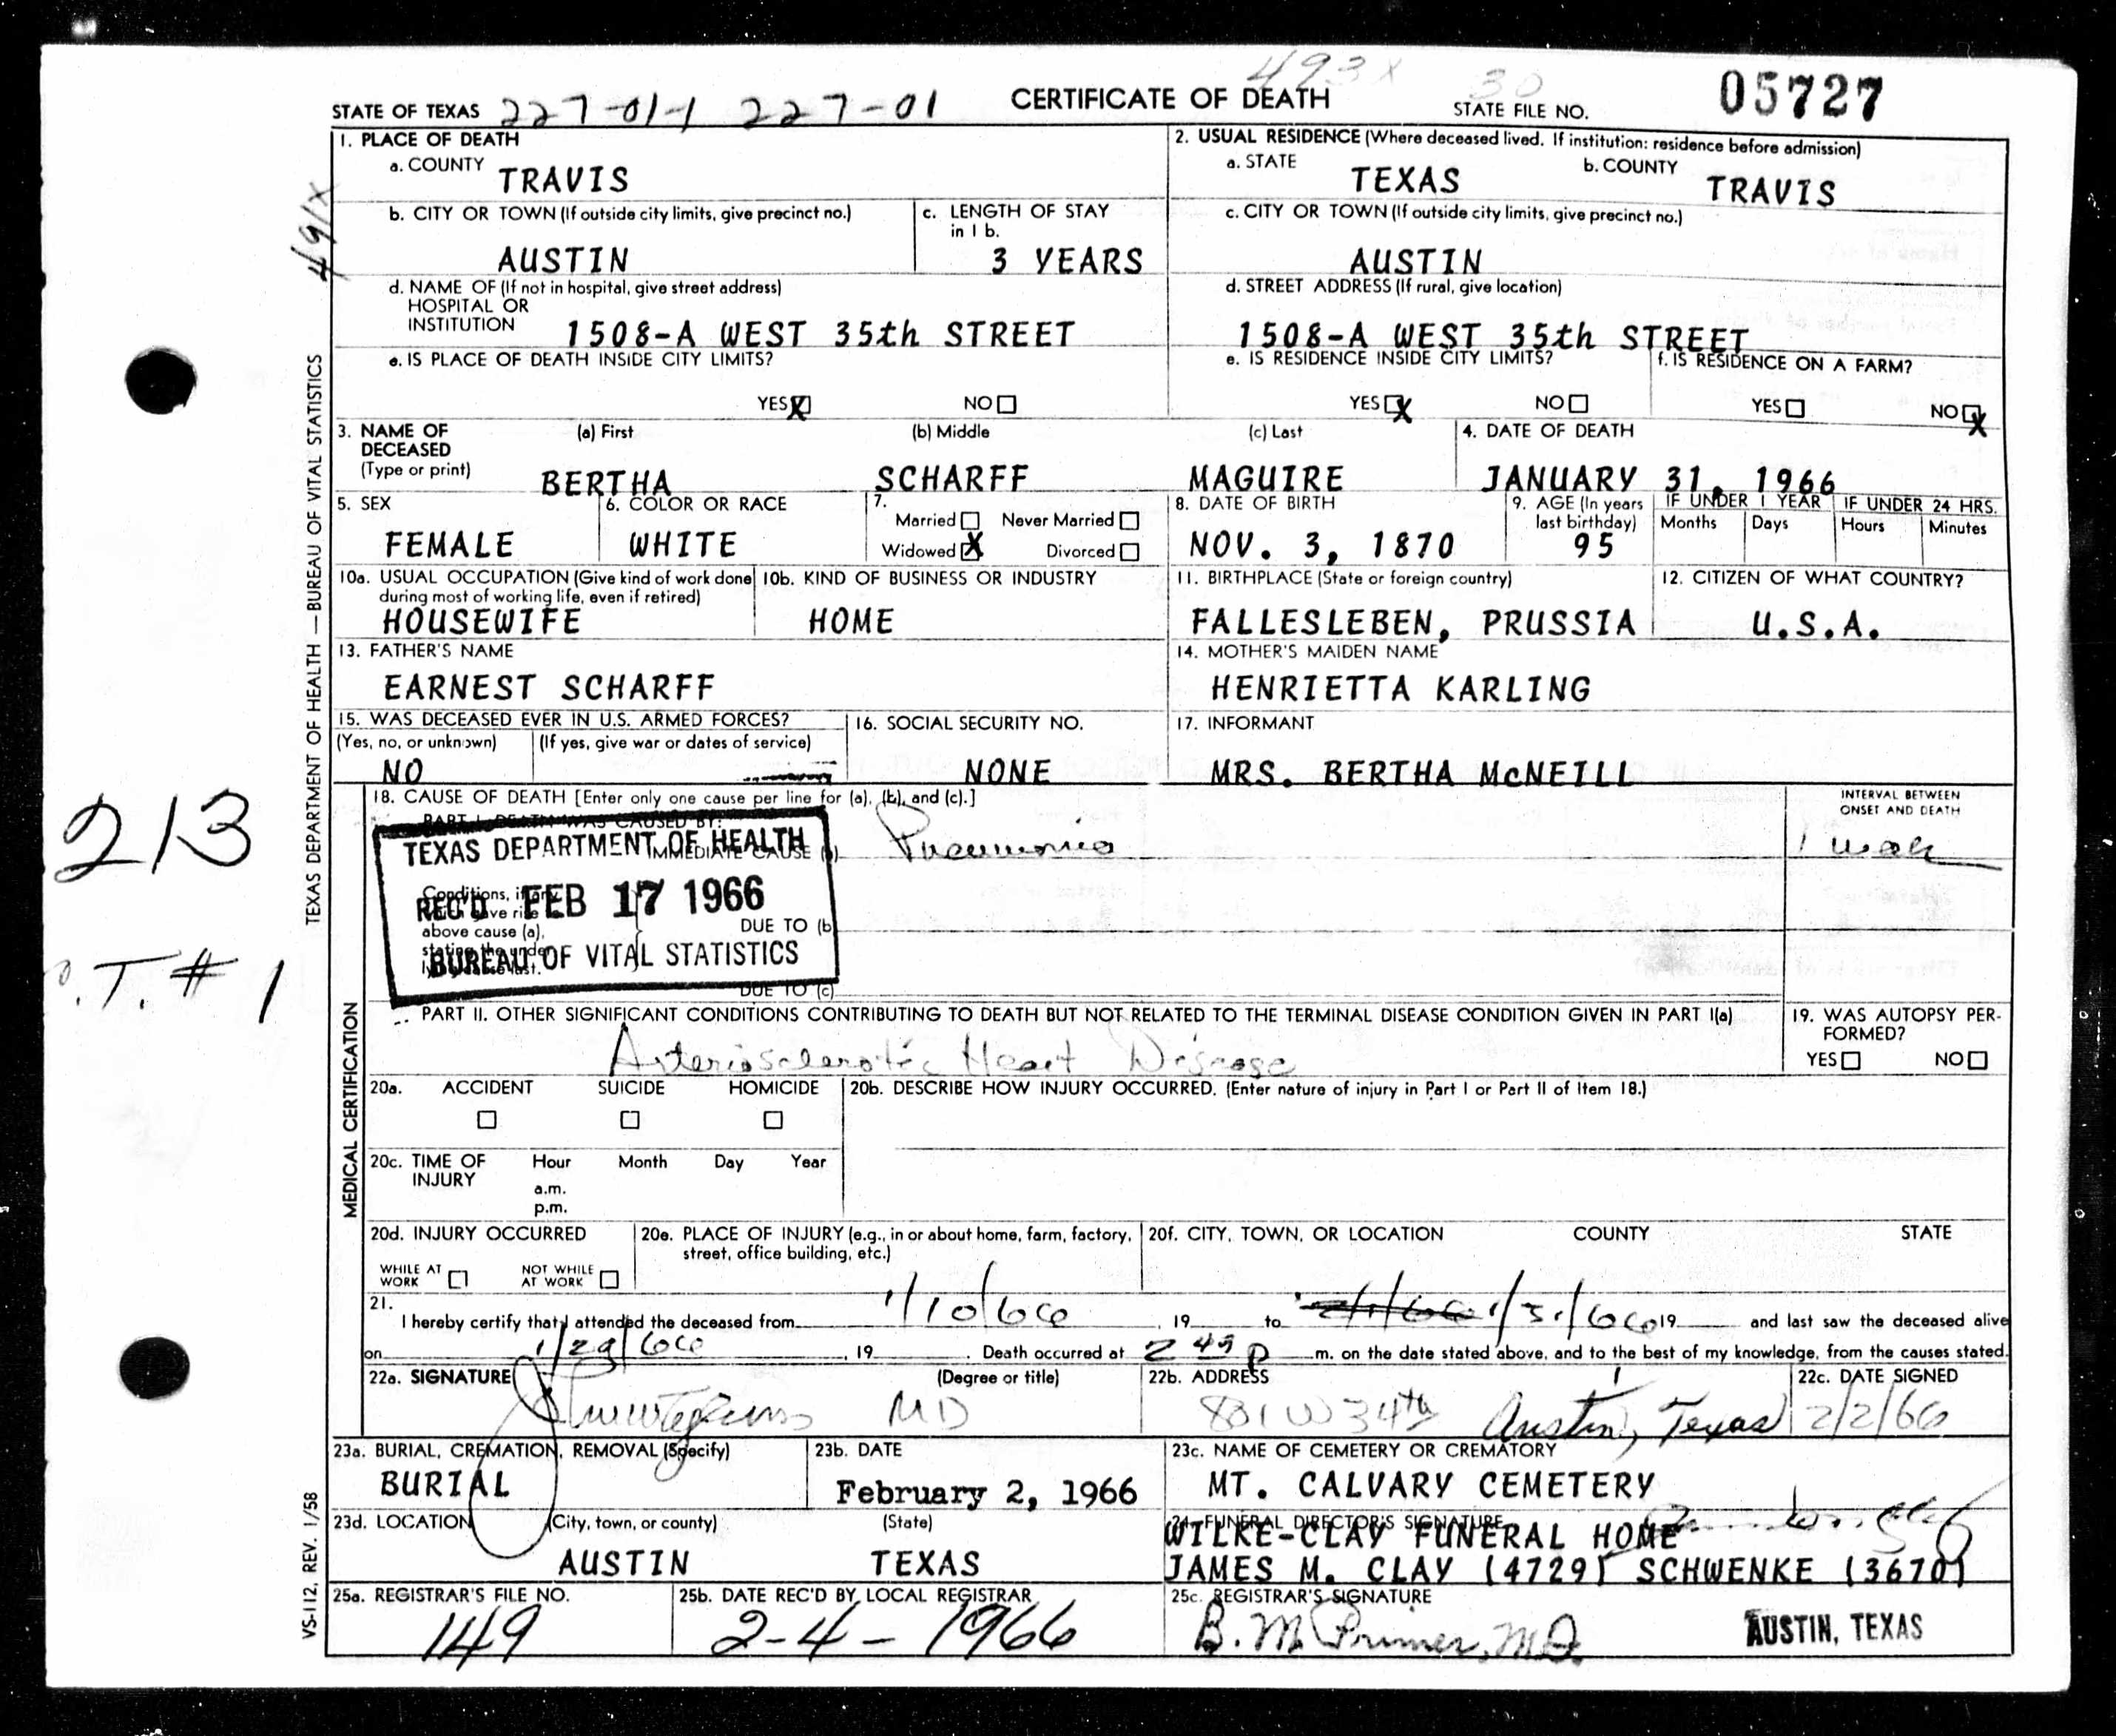 493x 30
STATE OF TEXAS 227-01-1 227-01 CERTIFICATE OF DEATH STATE FILE NO. 05727
1. PLACE OF DEATH
a. COUNTY TRAVIS
2. USUAL RESIDENCE (Where deceased lived. If institution: residence before admission)
a. STATE TEXAS b. COUNTY TRAVIS
491X
b. CITY OR TOWN (If outside city limits, give precinct no.)
AUSTIN
c. LENGTH OF STAY in 1 b.
3 YEARS
c. CITY OR TOWN (If outside city limits, give precinct no.)
AUSTIN
d. NAME OF (If not in hospital, give street address)
HOSPITAL OR
INSTITUTION 1508-A WEST 35th STREET
d. STREET ADDRESS (If rural, give location)
1508-A WEST 35th STREET
e. IS PLACE OF DEATH INSIDE CITY LIMITS?
YES X NO
e. IS RESIDENCE INSIDE CITY LIMITS?
YES X NO
f. IS RESIDENCE ON A FARM?
YES NO X
3. NAME OF DECEASED (Type or print)
(a) First (b) Middle (c) Last
BERTHA SCHARFF MAGUIRE
4. DATE OF DEATH
JANUARY 31, 1966
5. SEX
FEMALE
6. COLOR OR RACE
WHITE
7.
Married Never Married
Widowed X Divorced
8. DATE OF BIRTH
NOV. 3, 1870
9. AGE (In years last birthday)
95
IF UNDER 1 YEAR IF UNDER 24 HRS.
Months Days Hours Minutes
10a. USUAL OCCUPATION (Give kind of work done during most of working life, even if retired)
HOUSEWIFE
10b. KIND OF BUSINESS OR INDUSTRY
HOME
11. BIRTHPLACE (State or foreign country)
FALLESLEBEN, PRUSSIA
12. CITIZEN OF WHAT COUNTRY?
U.S.A.
13. FATHER'S NAME
EARNEST SCHARFF
14. MOTHER'S MAIDEN NAME
HENRIETTA KARLING
15. WAS DECEASED EVER IN U.S. ARMED FORCES?
(Yes, no, or unknown) (If yes, give war or dates of service)
NO
16. SOCIAL SECURITY NO.
NONE
17. INFORMANT
MRS. BERTHA McNEILL
TEXAS DEPARTMENT OF HEALTH — BUREAU OF VITAL STATISTICS
213
T. # 1
MEDICAL CERTIFICATION
18. CAUSE OF DEATH [Enter only one cause per line for (a), (b), and (c).]
INTERVAL BETWEEN ONSET AND DEATH
PART I. DEATH WAS CAUSED BY:
IMMEDIATE CAUSE (a) Pneumonia 1 week
Conditions, if any, which gave rise above cause (a), stating the under-lying cause last.
DUE TO (b)
DUE TO (c)
TEXAS DEPARTMENT OF HEALTH
REC'D FEB 17 1966
BUREAU OF VITAL STATISTICS
PART II. OTHER SIGNIFICANT CONDITIONS CONTRIBUTING TO DEATH BUT NOT RELATED TO THE TERMINAL DISEASE CONDITION GIVEN IN PART I(a)
Arteriosclerotic Heart Disease
19. WAS AUTOPSY PER-FORMED?
YES NO
20a. ACCIDENT SUICIDE HOMICIDE
20b. DESCRIBE HOW INJURY OCCURRED. (Enter nature of injury in Part I or Part II of Item 18.)
20c. TIME OF INJURY Hour Month Day Year
a.m.
p.m.
20d. INJURY OCCURRED
WHILE AT WORK NOT WHILE AT WORK
20e. PLACE OF INJURY (e.g., in or about home, farm, factory, street, office building, etc.)
20f. CITY, TOWN, OR LOCATION COUNTY STATE
21.
I hereby certify that I attended the deceased from 1/10/66, 19 to 1/31/66 19 and last saw the deceased alive
on 1/29/66, 19 . Death occurred at 2 45 p m. on the date stated above, and to the best of my knowledge, from the causes stated.
22a. SIGNATURE (Degree or title)
MD
22b. ADDRESS
801 W 34th Austin, Texas
22c. DATE SIGNED
2/2/66
23a. BURIAL, CREMATION, REMOVAL (Specify)
BURIAL
23b. DATE
February 2, 1966
23c. NAME OF CEMETERY OR CREMATORY
MT. CALVARY CEMETERY
23d. LOCATION (City, town, or county) (State)
AUSTIN TEXAS
24. FUNERAL DIRECTOR'S SIGNATURE
WILKE-CLAY FUNERAL HOME
JAMES M. CLAY (4729) SCHWENKE (3670)
25a. REGISTRAR'S FILE NO.
149
25b. DATE REC'D BY LOCAL REGISTRAR
2-4-1966
25c. REGISTRAR'S SIGNATURE
B. M. Primer, M.D. AUSTIN, TEXAS
VS-112, REV. 1/58